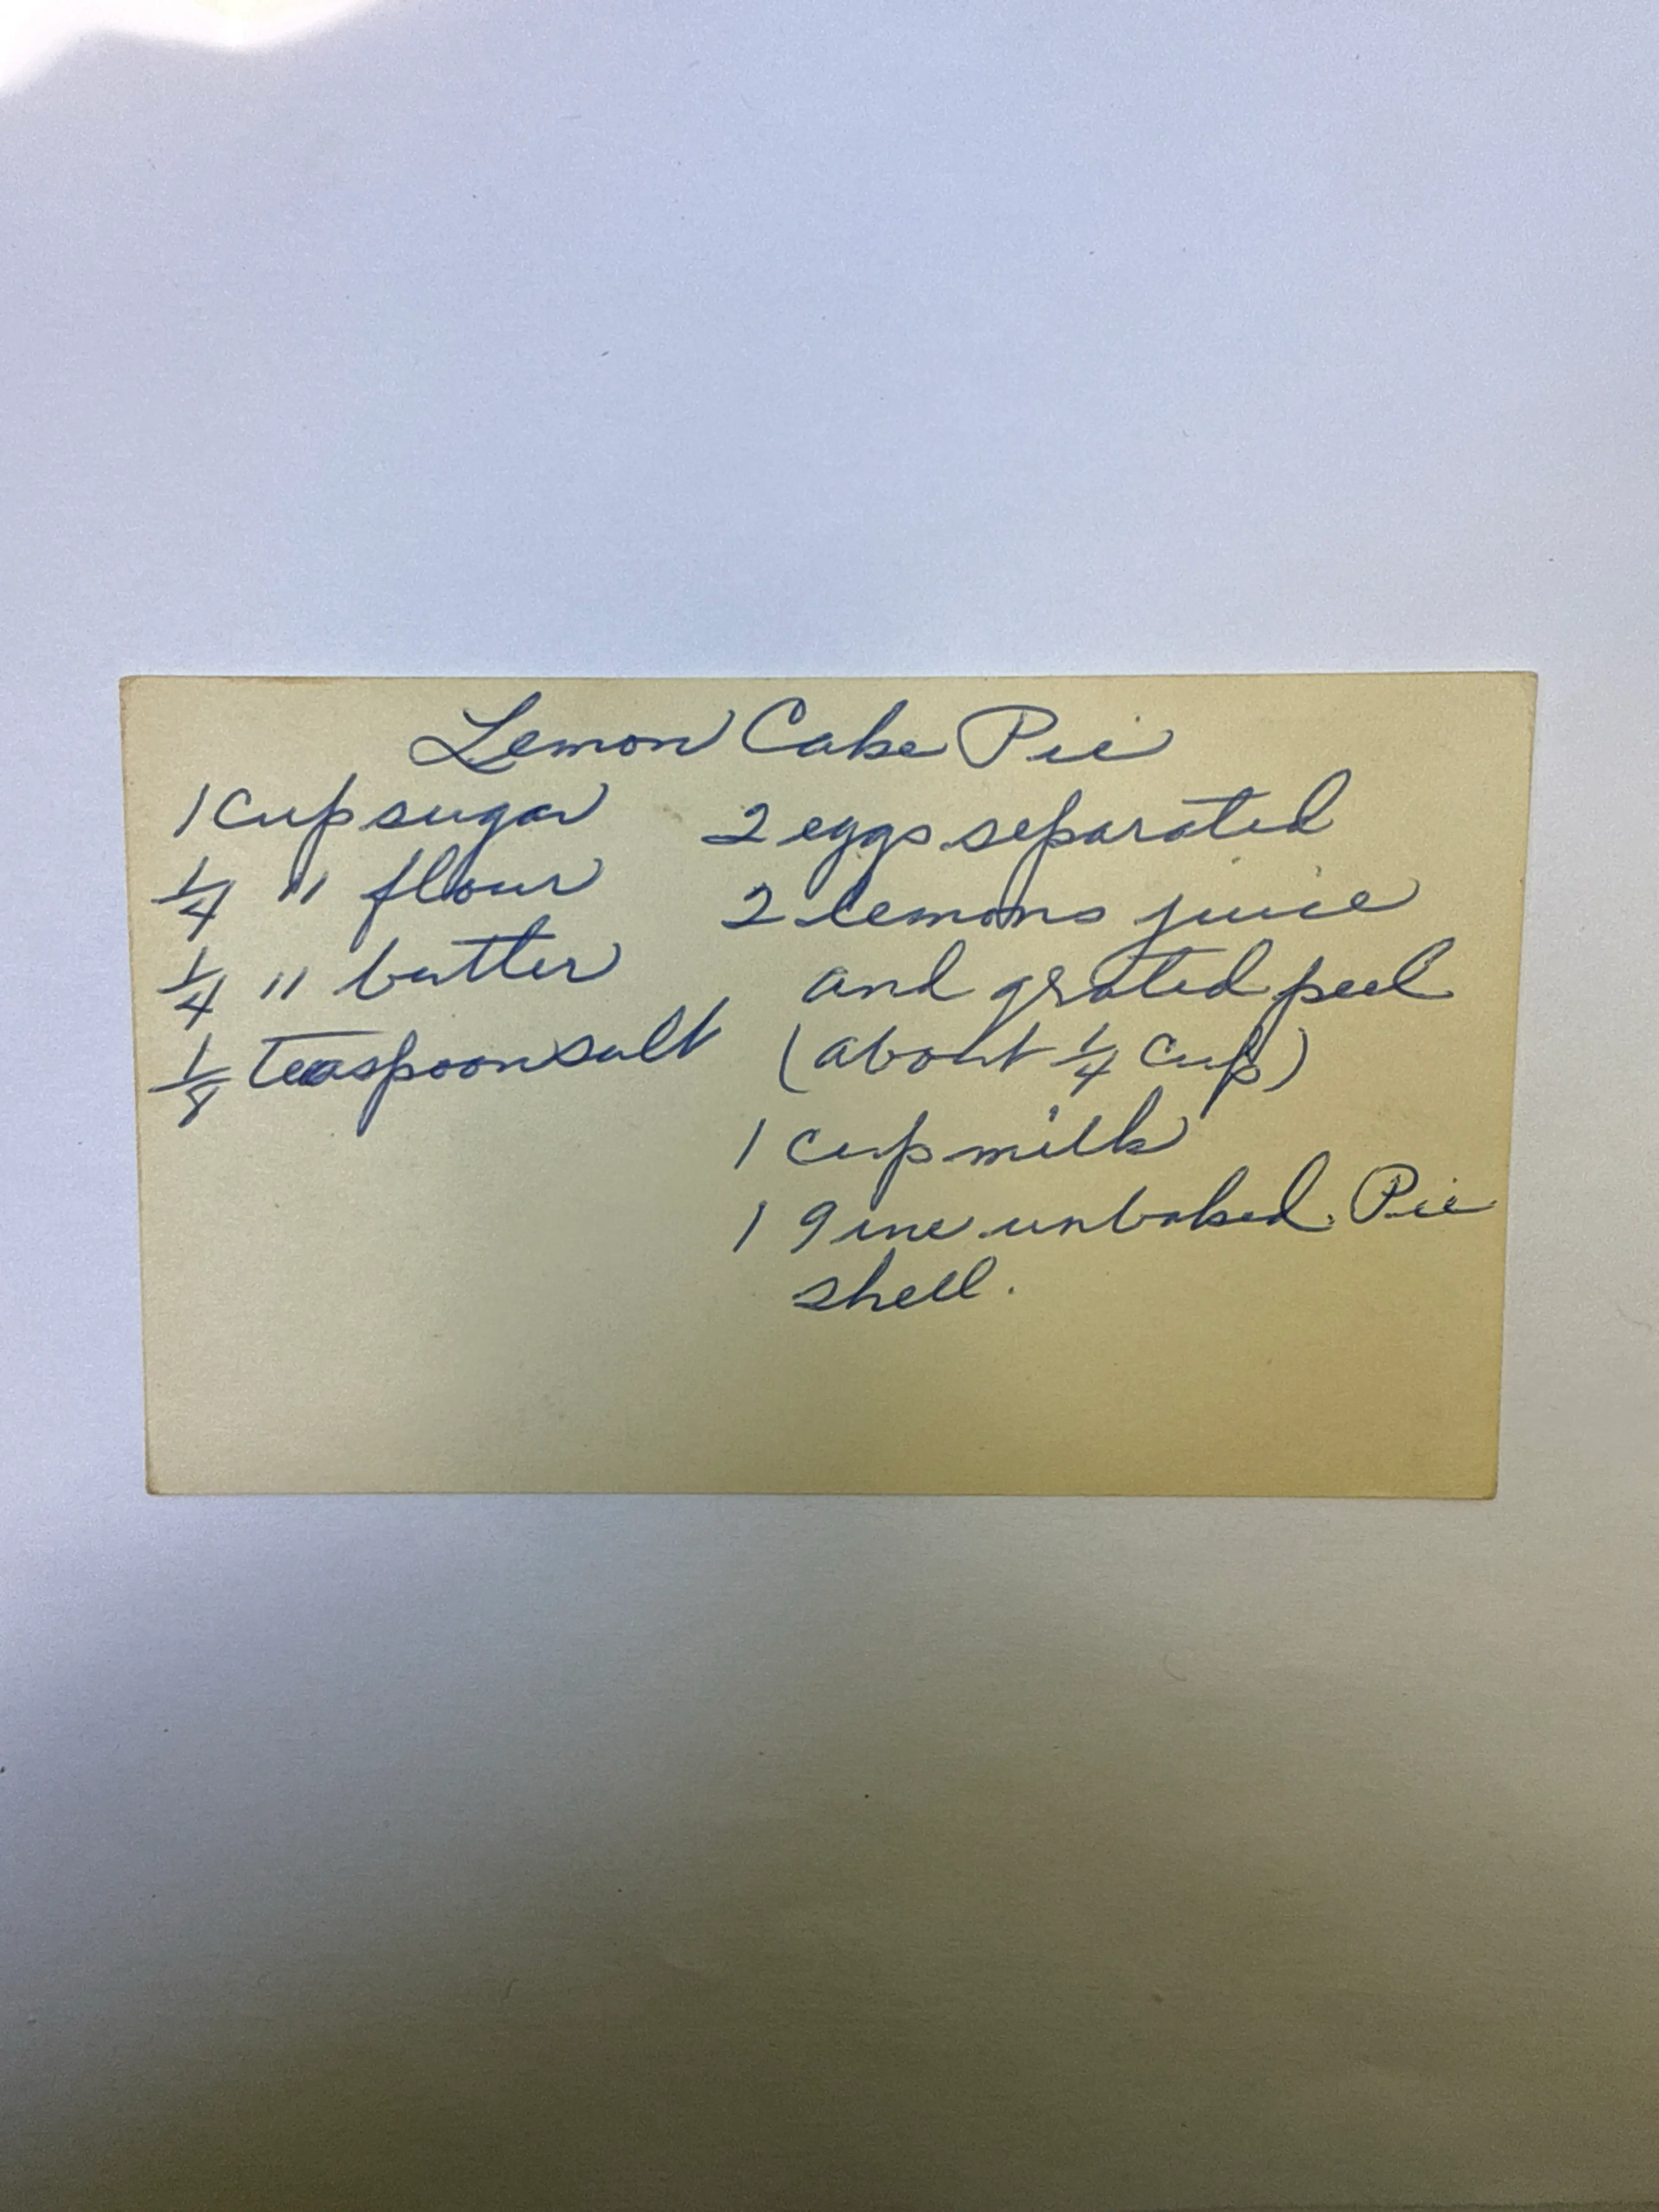 Lemon Cake Pie
1 Cup sugar
1/4 " flour
1/4 " butter
1/8 teaspoon salt
2 eggs separated
2 lemons juice
and grated peel
(about 1/4 cup)
1 cup milk
1 9 ine unbaked Pie
shell.